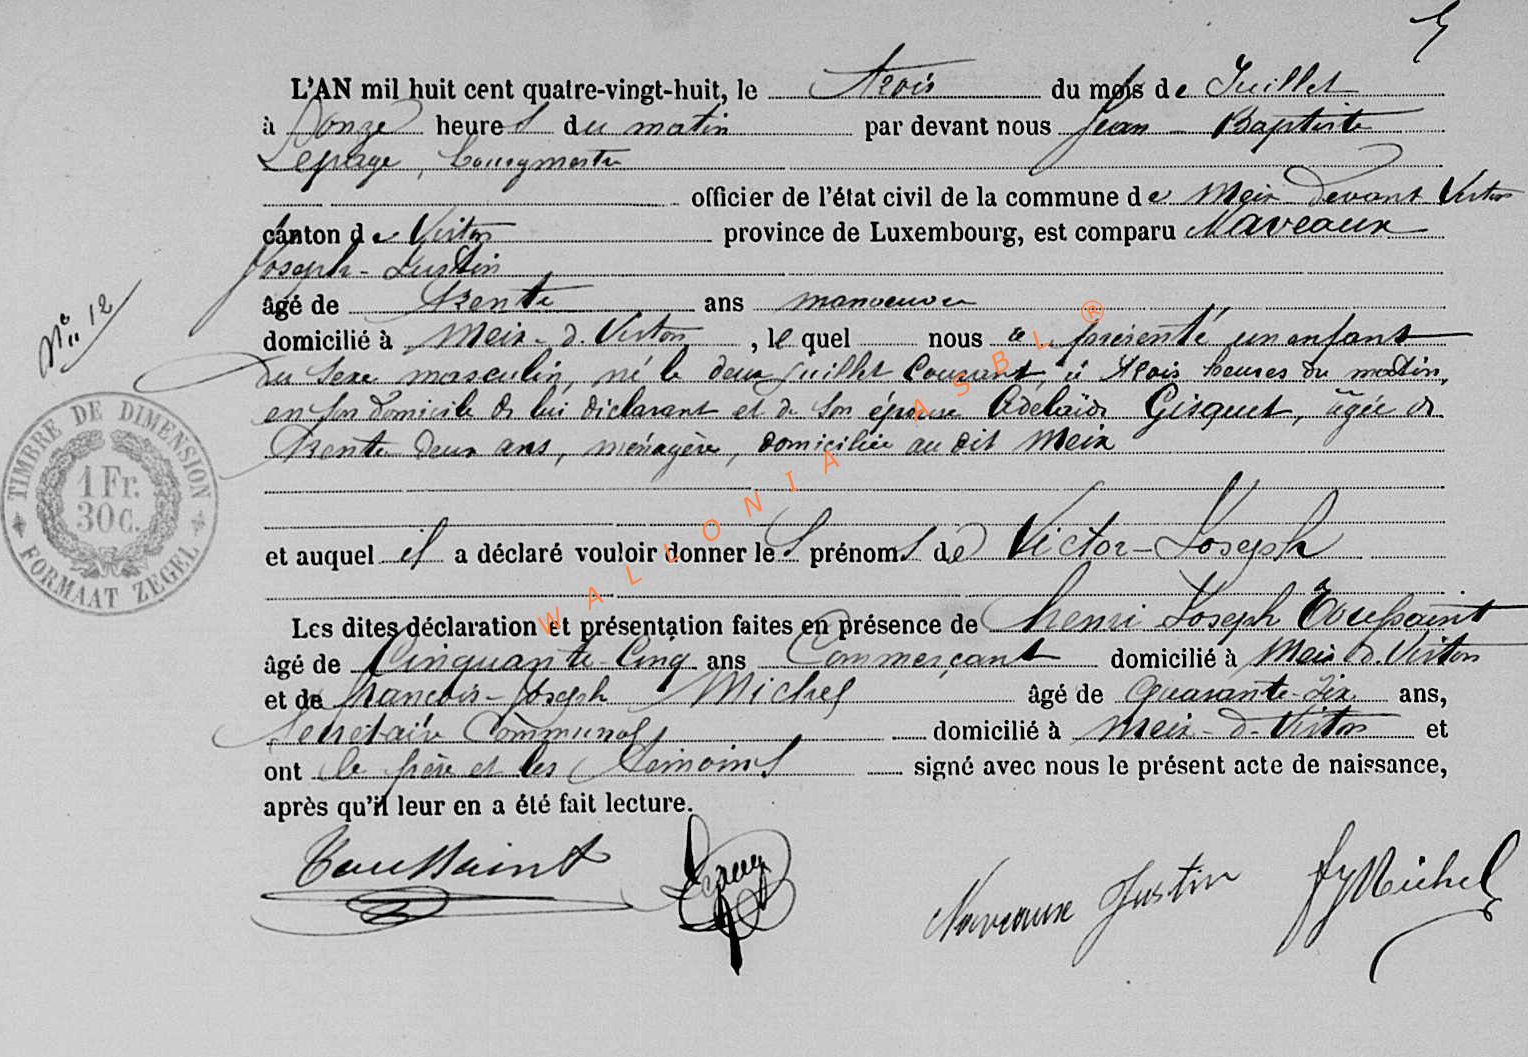 5
L'AN mil huit cent quatre-vingt-huit, le trois du mois de Juillet
à onze heures du matin par devant nous Jean-Baptiste
Lepage, bourgmestre
officier de l'état civil de la commune de Meix devant Virton
canton de Virton province de Luxembourg, est comparu Naveaux
Joseph-Justin
âgé de trente ans manoeuvre
N° 12
domicilié à Meix-d-Virton, lequel nous a présenté un enfant
du sexe masculin, né le deux Juillet courant, à trois heures du matin,
en son domicile de lui déclarant et de son épouse Adelaïde Gisquet, âgée de
trente deux ans, ménagère, domiciliée au dit Meix
TIMBRE DE DIMENSION
1 Fr.
30 C.
FORMAAT ZEGEL
et auquel il a déclaré vouloir donner les prénoms de Victor-Joseph
Les dites déclaration et présentation faites en présence de henri Joseph Toussaint
âgé de Cinquante-Cinq ans Commerçant domicilié à Meix d. Virton
et de francois-Joseph Michel âgé de quarante-six ans,
Secrétaire Communal domicilié à Meix-d-Virton et
ont le père et les témoins signé avec nous le présent acte de naissance,
après qu'il leur en a été fait lecture.
Toussaint Lepage Naveaux Justin fj Michel
WALLONIA ASBL ®